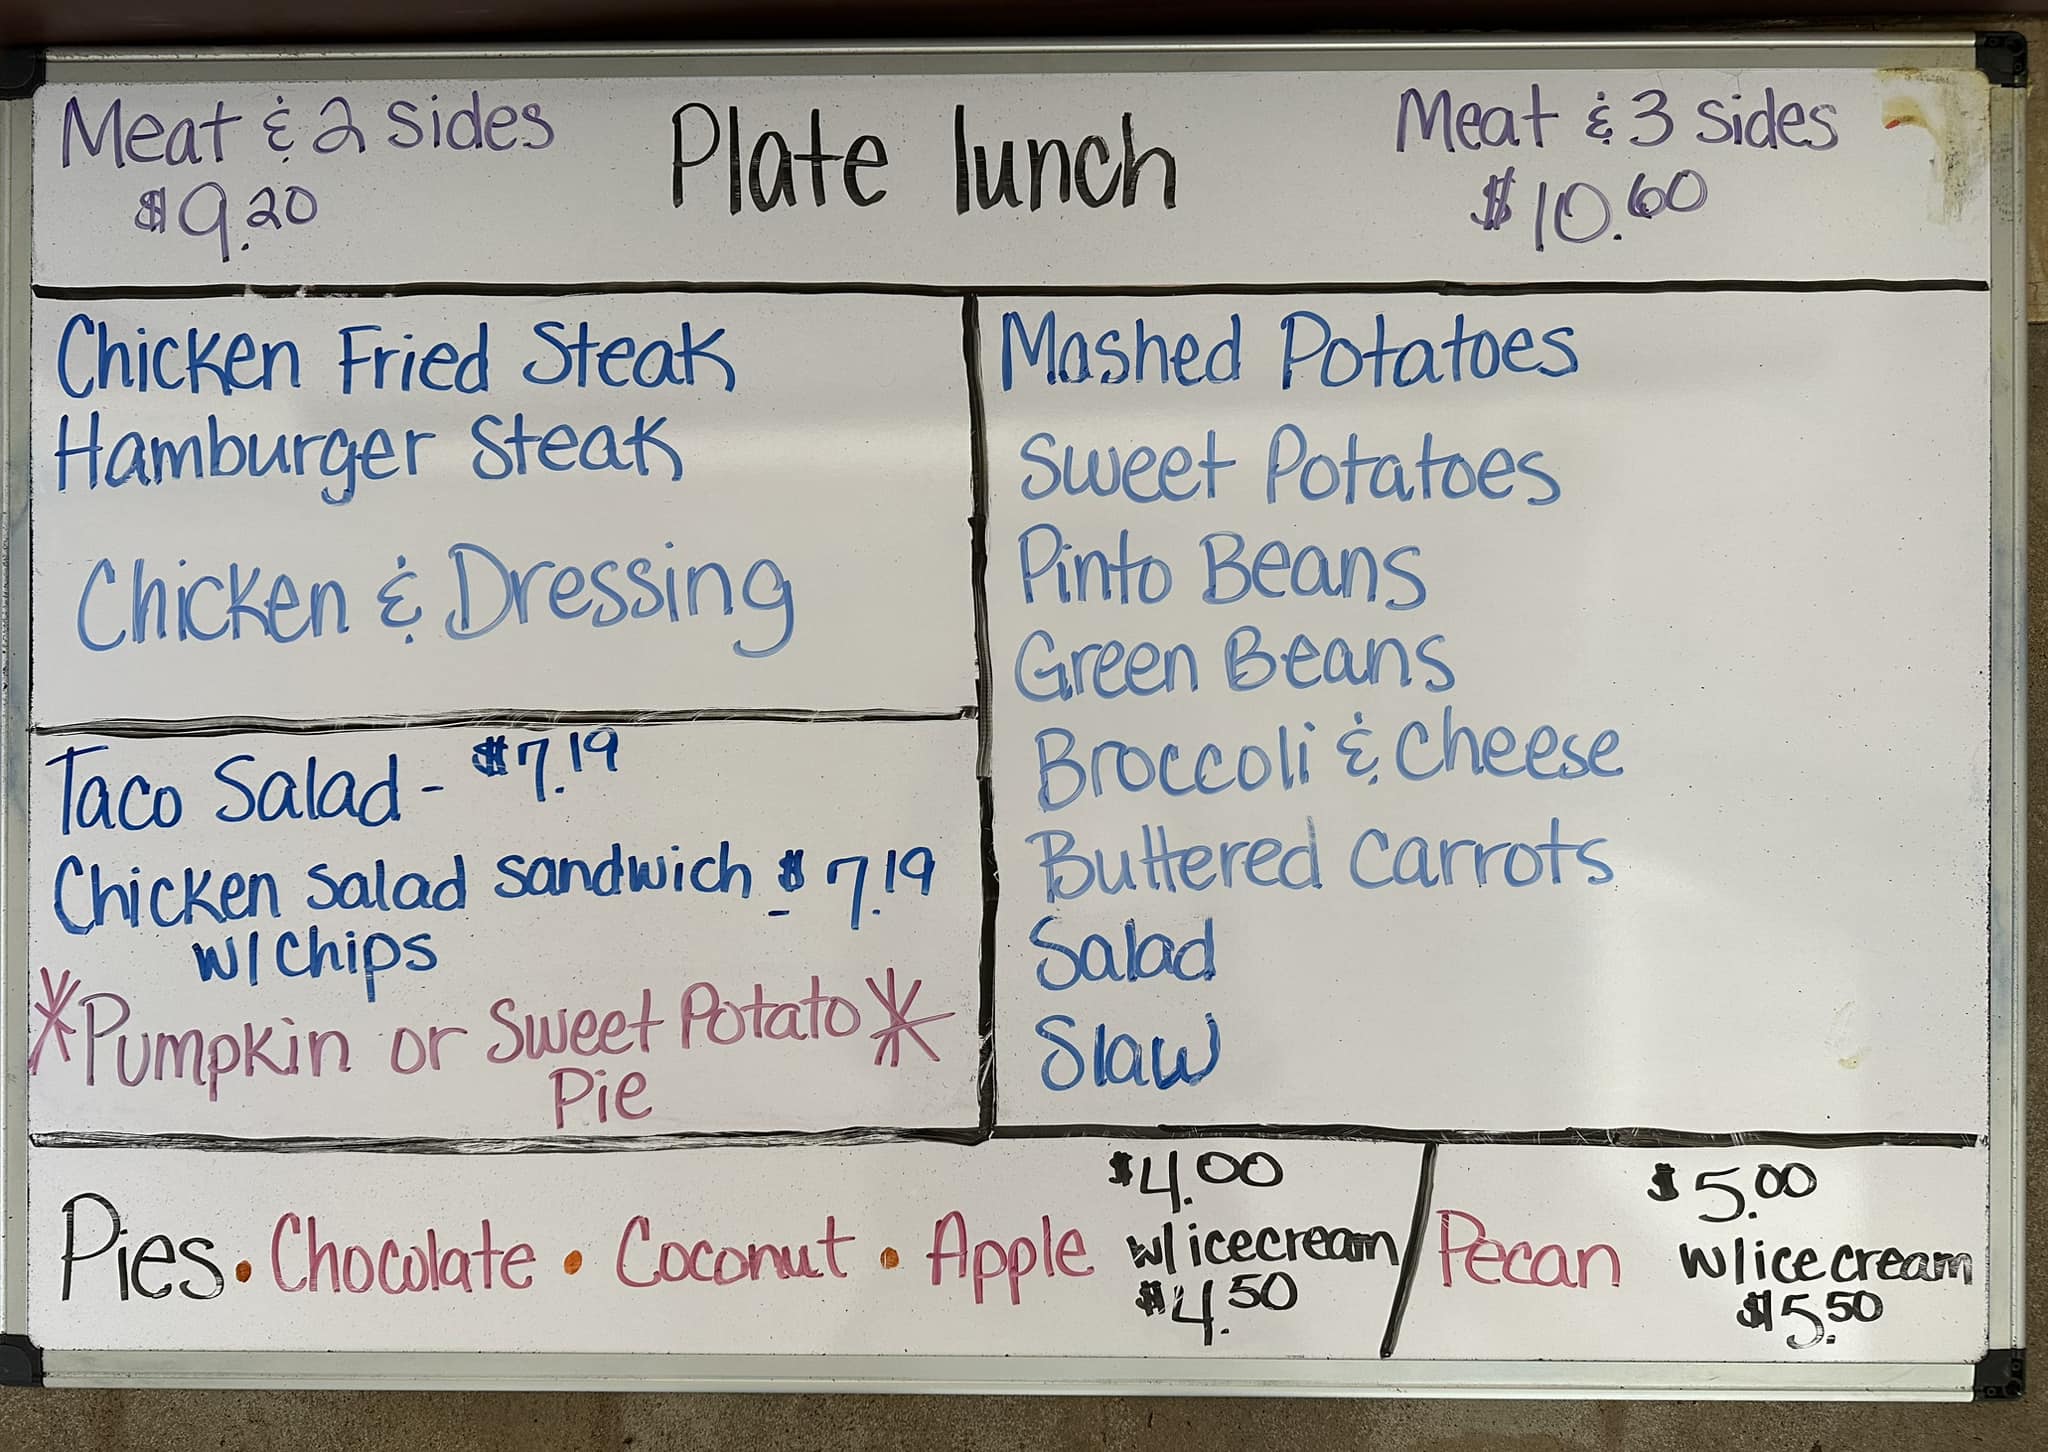 Meat & 2 sides
$9.20
Plate lunch
Meat & 3 sides
$10.60
Chicken Fried Steak
Hamburger Steak
Chicken & Dressing
Mashed Potatoes
Sweet Potatoes
Pinto Beans
Green Beans
Broccoli & Cheese
Buttered Carrots
Salad
Slaw
Taco Salad - $7.19
Chicken salad sandwich $7.19
w/ Chips
*Pumpkin or Sweet Potato*
Pie
Pies • Chocolate • Coconut • Apple
$4.00
w/ icecream
$4.50
Pecan
$5.00
w/ ice cream
$5.50